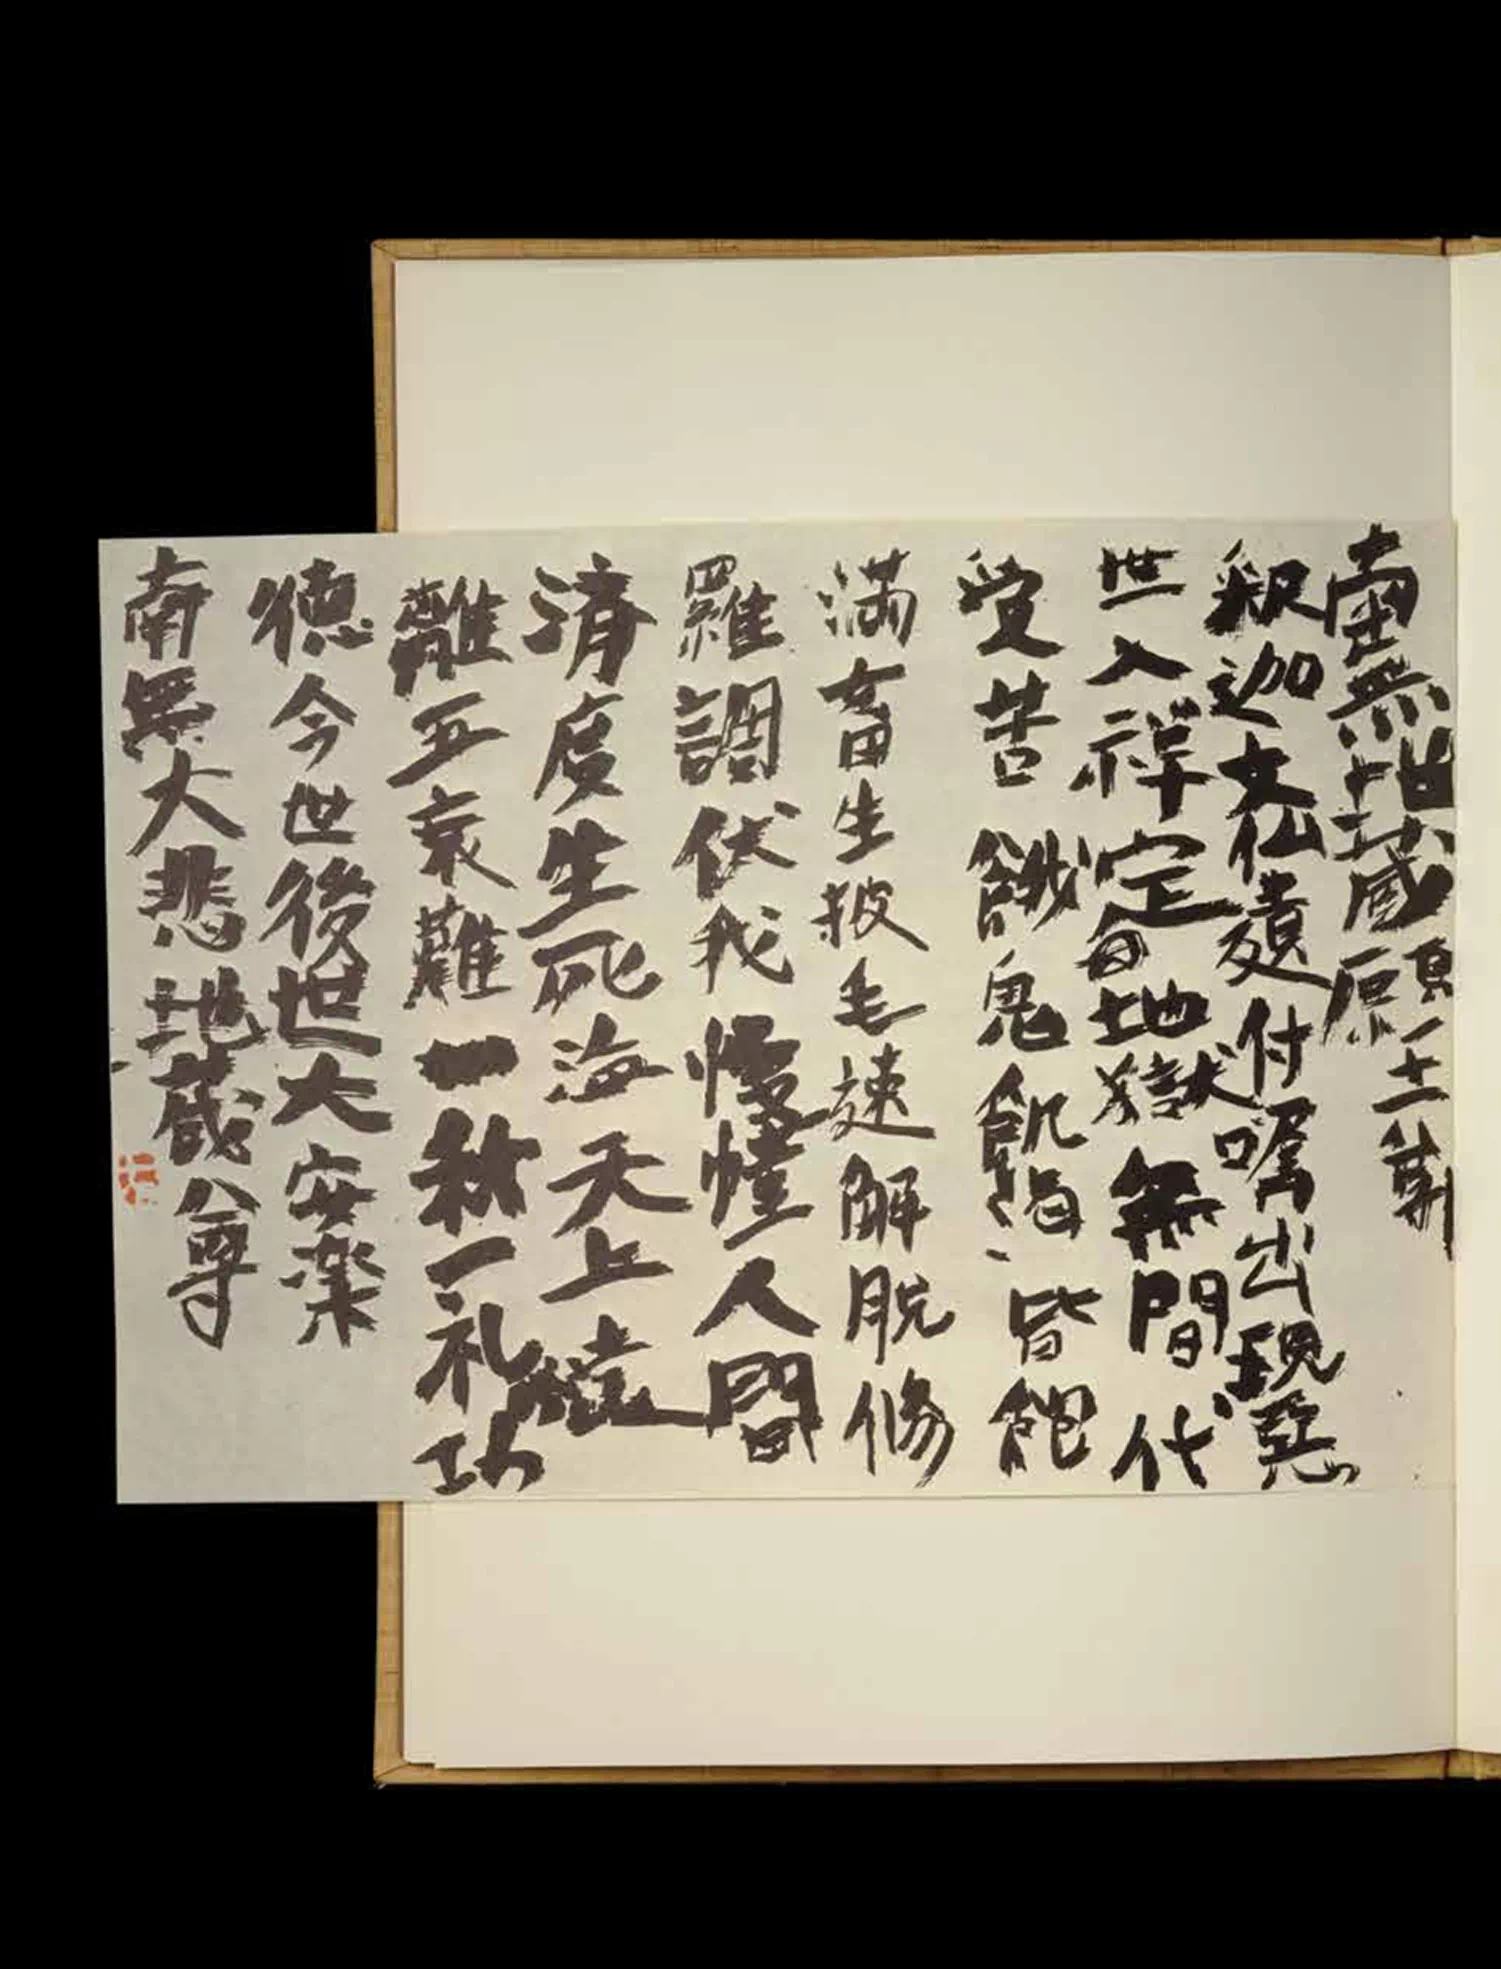 南無地蔵願王尊
釈迦文仏慇付嘱出現悪
世入禅定毎地獄無間代
受苦餓鬼飢渇皆飽
満畜生披毛速解脱修
羅調伏我慢幢人間
済度生死海天上
離五衰難一称一礼功
徳今世後世大安楽
南無大悲地蔵尊